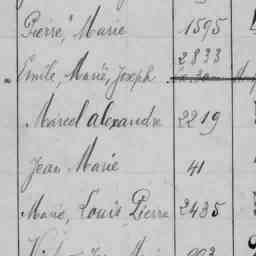 Pierre, Marie 1595
2833
Emile, Marie, Joseph
Marcel alexandre 2219
Jean Marie 41
Marie, Louis Pierre 2435